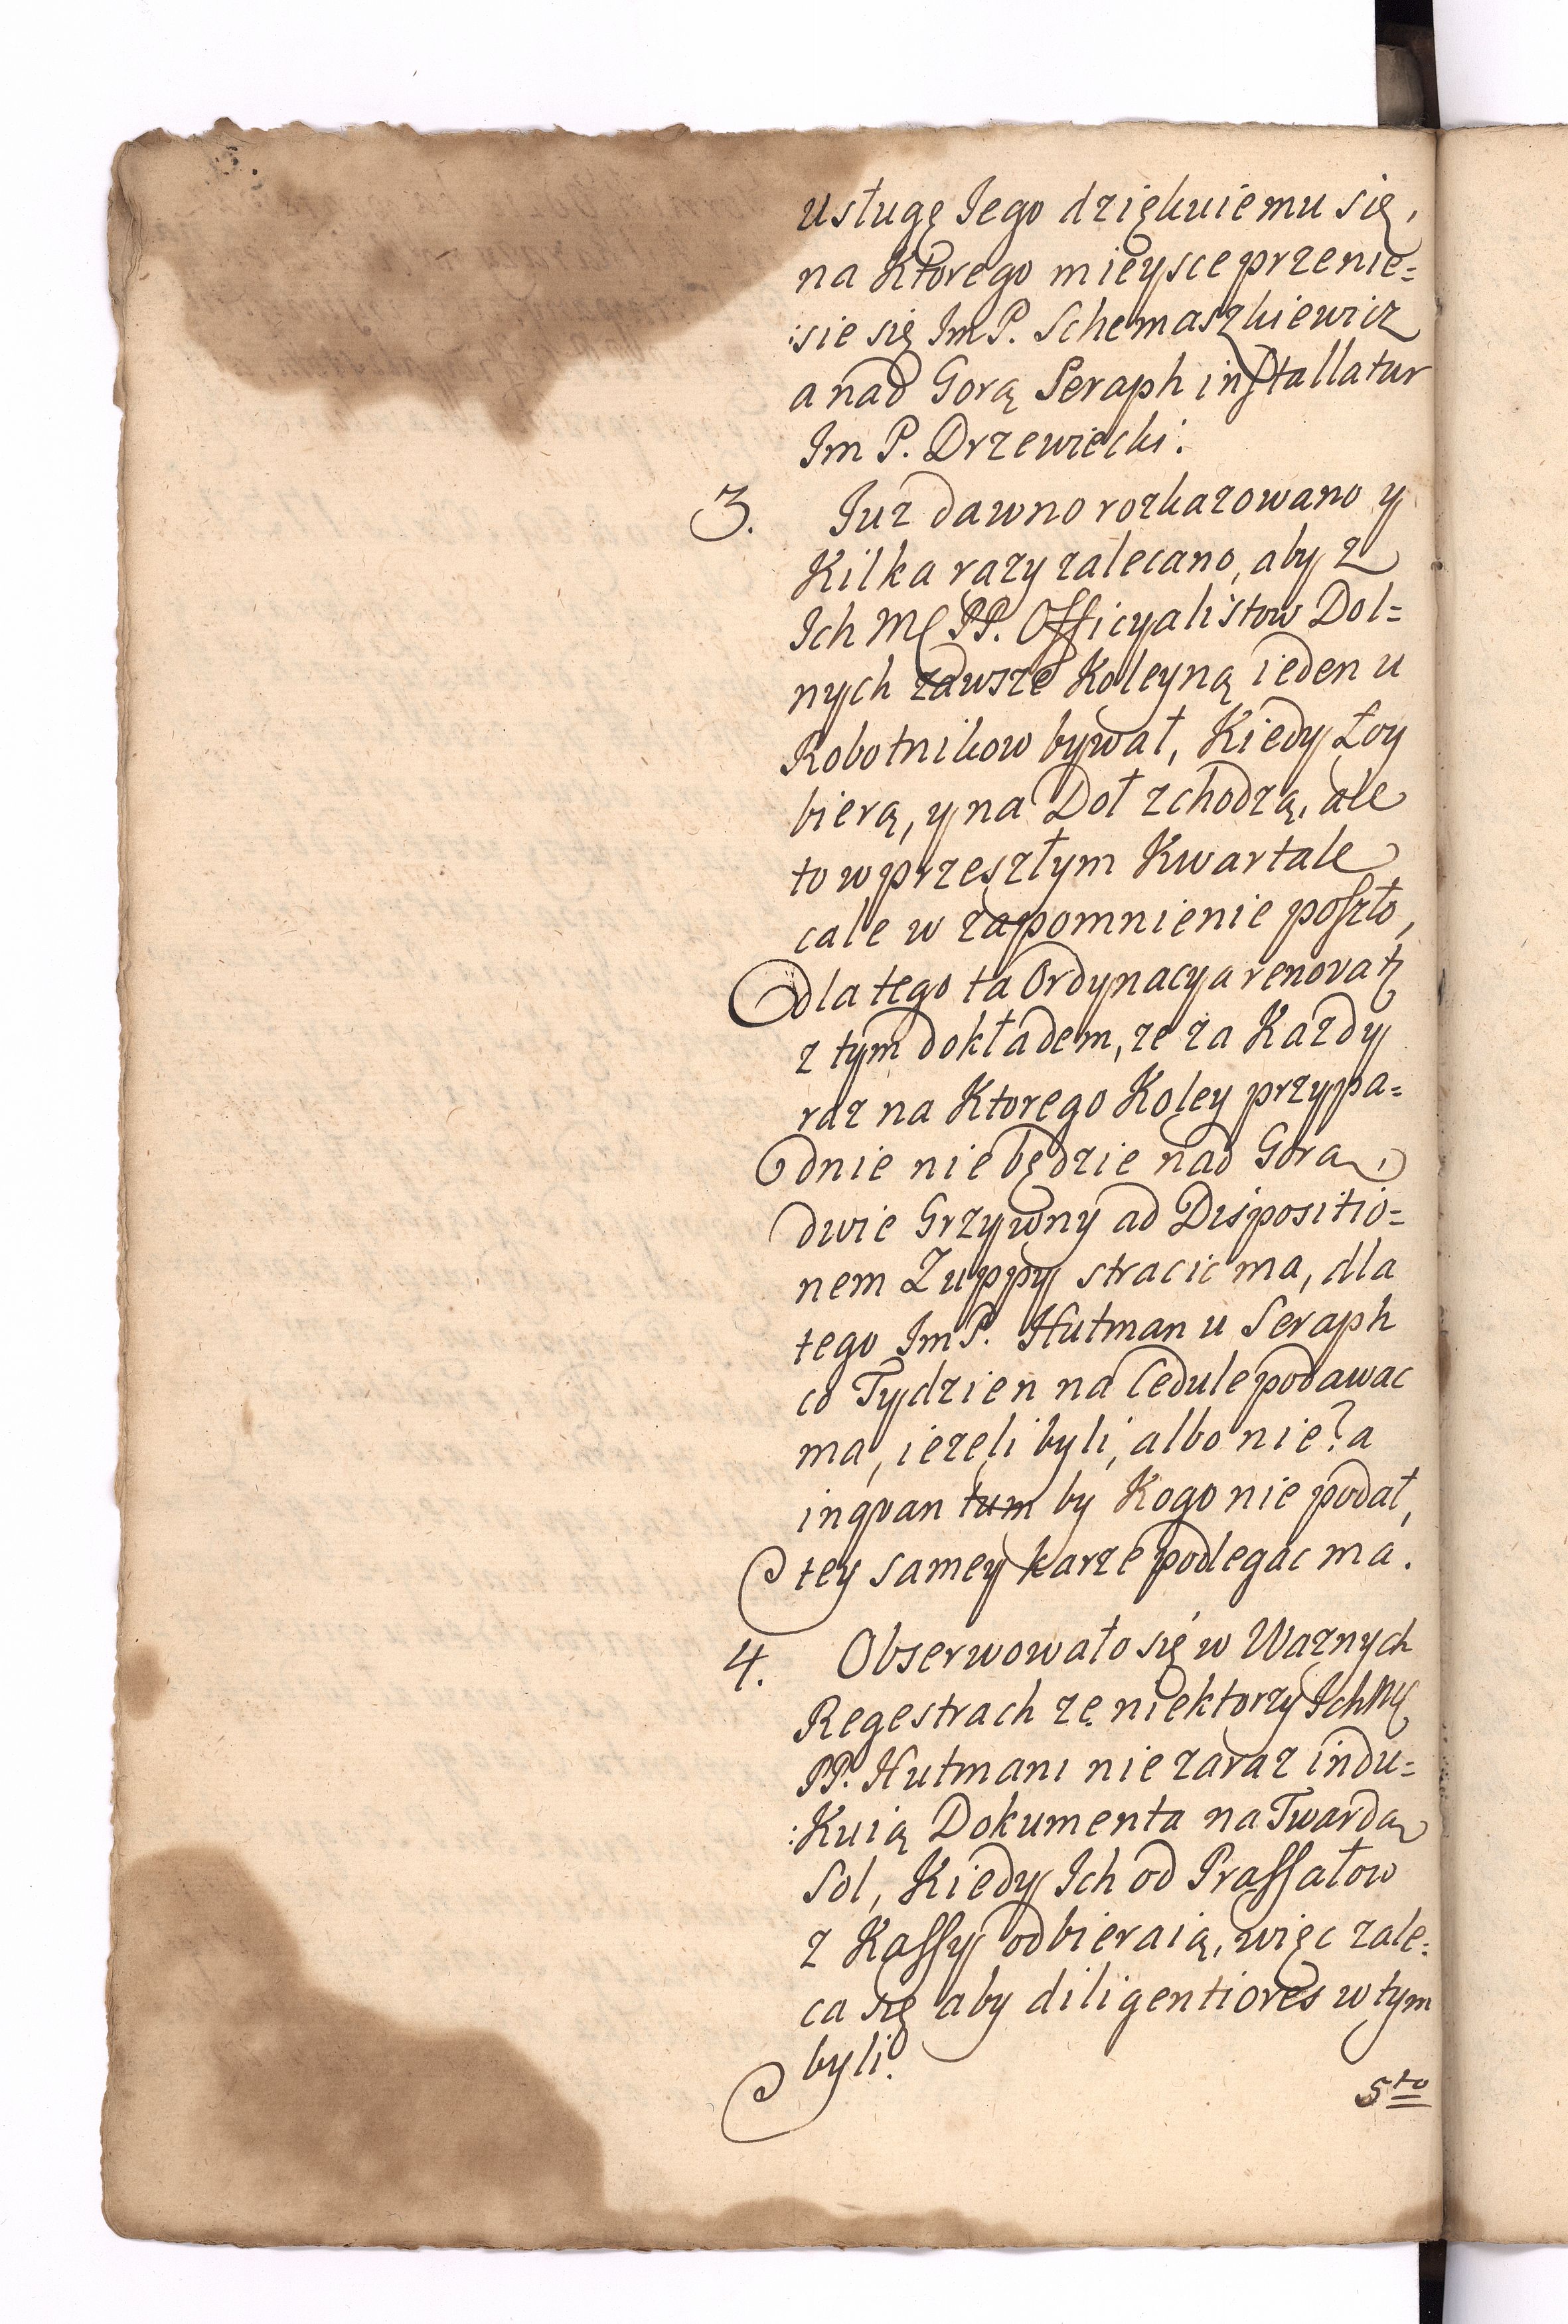 usługę Iego dziękuiemu się,
na Ktorego mieysce przenie=
:sie się Im P. Schemaszkiewicz
a nad Gorą Seraph installatur
Im P. Drzewiecki.
3. Iuz dawno rozkazowano y
Kilka razy zalecano, aby z
Ich Mć PP. Officyalistow Dol=
nych zawsze Koleyną ieden u
Robotnikow bywał, Kiedy Łoy
bierą, y na Doł zchodzą, ale
to w przeszłym Kwartale
cale w zapomnienie poszło,
dla tego ta Ordynacya renovatr
z tym dokładem, ze za Kazdy
raz na Ktorego Koley przypa=
dnie nie będzie nad Gorą,
dwie Grzywny ad Dispositio=
nem Zuppy stracic ma, dla
tego Im P. Hutman u Seraph
co Tydzien na Cedule podawac
ma, iezeli byli, albo nie? a
inqvantum by Kogo nie podał,
tey samey karze podlegac ma.
4. Obserwowało się w Waznych
Regestrach ze niektorzy Ich Mć
PP. Hutmani nie zaraz indu=
:Kuią Dokumenta na Twardą
Sol, Kiedy Ich od Prassałow
z Kassy odbieraią, więc zale:
ca się aby diligentiores w tym
byli.
5to